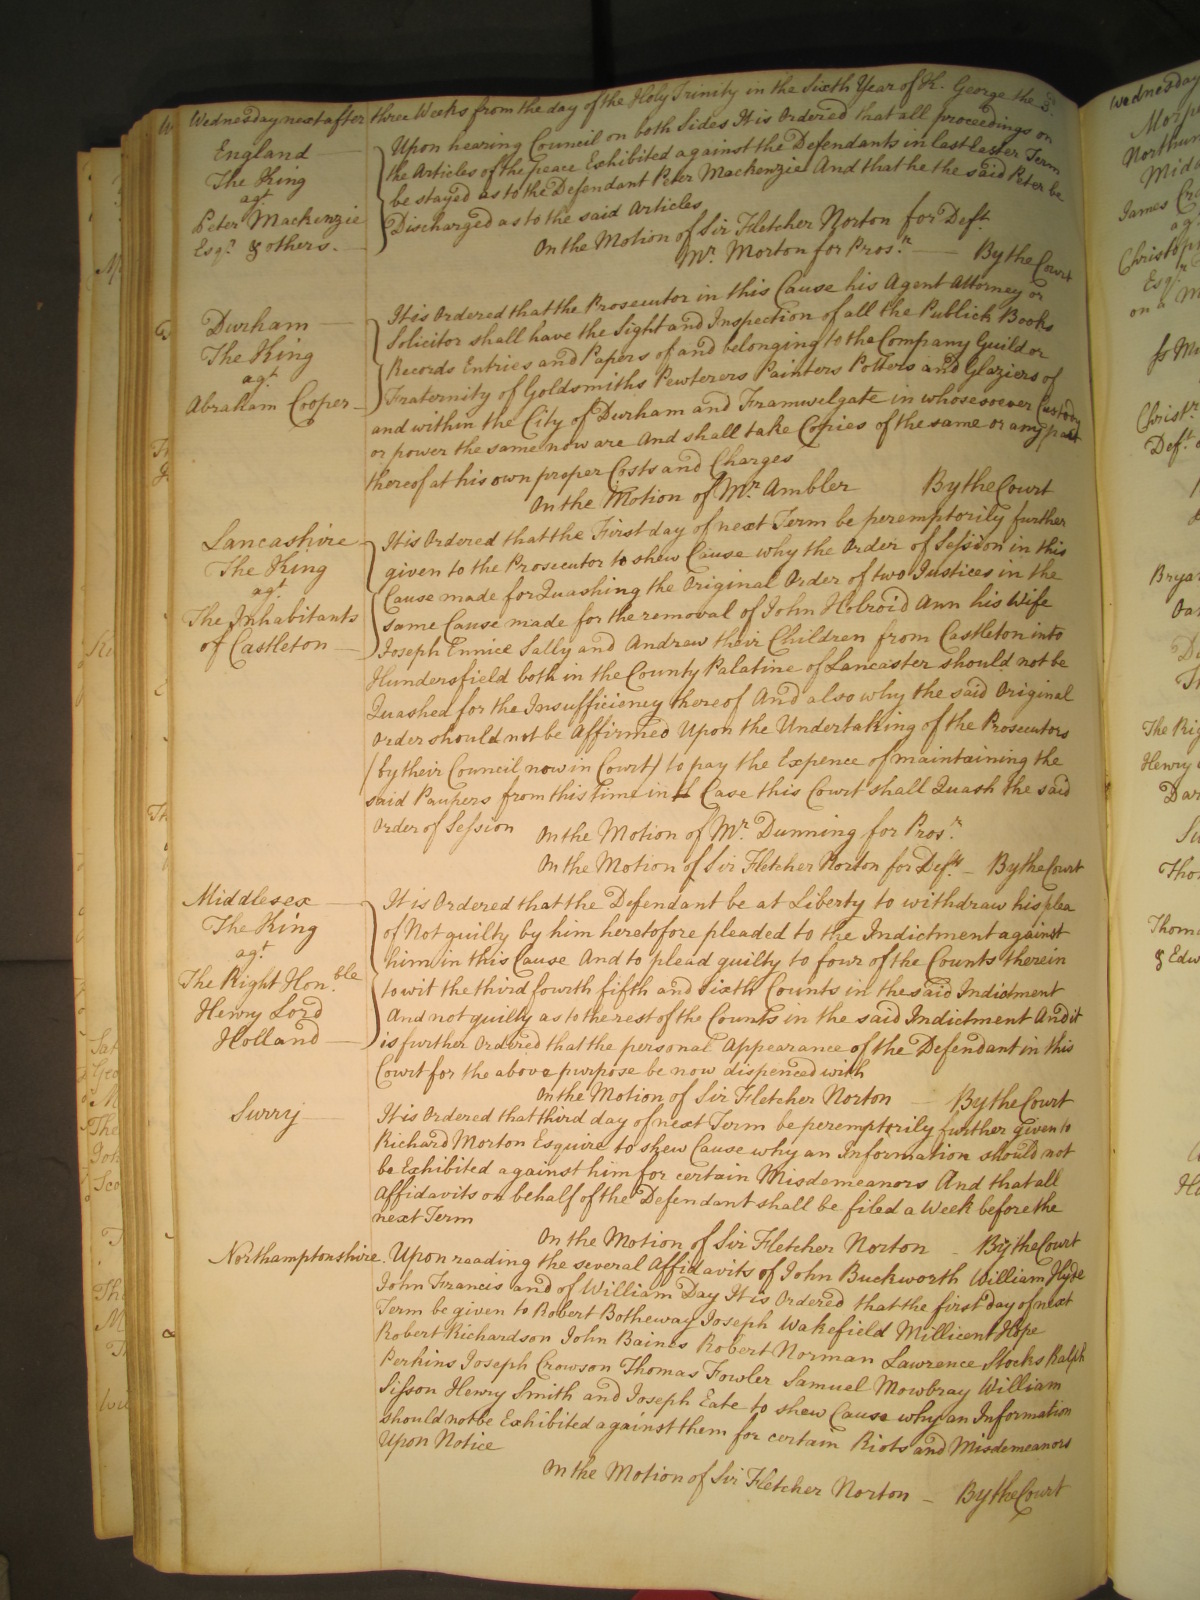 Wednesday next after three Weeks from the day of the Holy Trinity in the Sixth Year of K. George the 3.
England
The King
agt
Peter Mackenzie
Esqr. & others.
Upon hearing Council on both Sides It is Ordered that all proceedings on
the Articles of the peace Exhibited against the Defendants in last Easter Term
be stayed as to the Defendant Peter Mackenzie And that he the said Peter be
Discharged as to the said Articles
On the Motion of Sir Fletcher Norton for Deft.
Mr. Morton for Prosr. — By the Court
Durham
The King
agt
Abraham Cooper
It is Ordered that the Prosecutor in this Cause his Agent Attorney or
Solicitor shall have the Sight and Inspection of all the Publick Books
Records Entries and Papers of and belonging to the Company Guild or
Fraternity of Goldsmiths Pewterers Painters Potters and Glaziers of
and within the City of Durham and Framwelgate in whosesoever Custody
or power the same now are And shall take Copies of the same or any part
thereof at his own proper Costs and Charges
On the Motion of Mr Ambler By the Court
Lancashire
The King
agt
The Inhabitants
of Castleton
It is Ordered that the First day of next Term be peremptorily further
given to the Prosecutor to shew Cause why the Order of Session in this
Cause made for Quashing the Original Order of two Justices in the
same Cause made for the removal of John Holroid Ann his Wife
Joseph Ennice Sally and Andrew their Children from Castleton into
Hundersfield both in the County Palatine of Lancaster should not be
Quashed for the Insufficiency thereof And also why the said Original
Order should not be Affirmed Upon the Undertaking of the Prosecutors
(by their Council now in Court) to pay the Expence of maintaining the
said Paupers from this time in Case this Court shall Quash the said
Order of Session On the Motion of Mr. Dunning for Prosr.
On the Motion of Sir Fletcher Norton for Defts. — By the Court
Middlesex
The King
agt
The Right Honble
Henry Lord
Holland
It is Ordered that the Defendant be at Liberty to withdraw his plea
of Not guilty by him heretofore pleaded to the Indictment against
him in this Cause And to plead guilty to four of the Counts therein
to wit the third fourth fifth and sixth Counts in the said Indictment
And not guilty as to the rest of the Counts in the said Indictment And it
is further Ordered that the personal Appearance of the Defendant in this
Court for the above purpose be now dispenced with
On the Motion of Sir Fletcher Norton — By the Court
Surry
It is Ordered that third day of next Term be peremptorily further given to
Richard Morton Esquire to shew Cause why an Information should not
be Exhibited against him for certain Misdemeanors And that all
Affidavits on behalf of the Defendant shall be filed a Week before the
next Term
On the Motion of Sir Fletcher Norton - By the Court
Northamptonshire. Upon reading the several Affidavits of John Buckworth William Hyde
John Francis and of William Day It is Ordered that the first day of next
Term be given to Robert Botheway Joseph Wakefield Millicent Hope
Robert Richardson John Baines Robert Norman Lawrence Stocks Ralph
Perkins Joseph Crowson Thomas Fowler Samuel Mowbray William
Sisson Henry Smith and Joseph Eate to shew Cause why an Information
should not be Exhibited against them for certain Riots and Misdemeanors
Upon Notice
On the Motion of Sir Fletcher Norton — By the Court